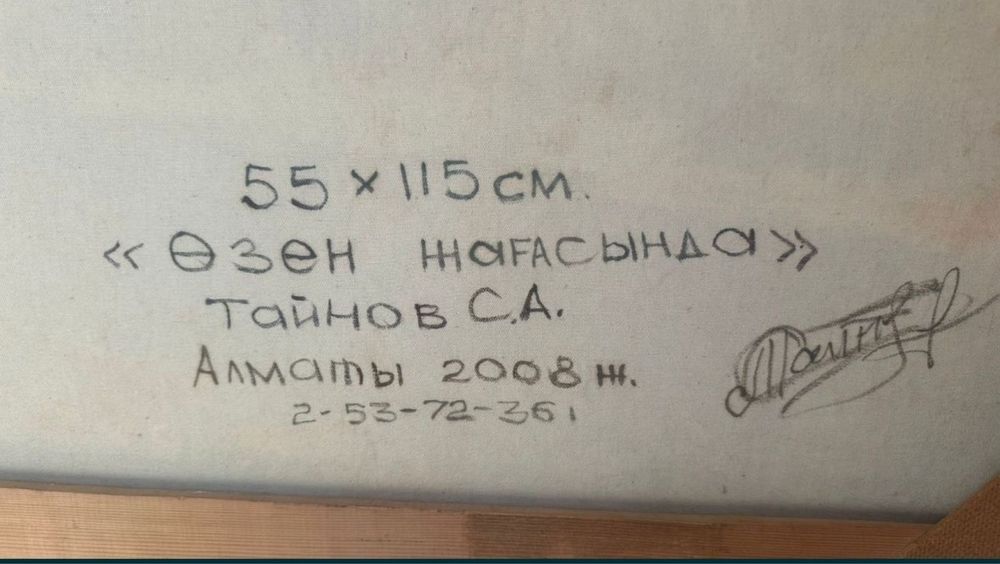 55 × 115 см.
« Өзен жағасында »
Тайнов С.А.
Алматы 2008 ж.
2-53-72-361